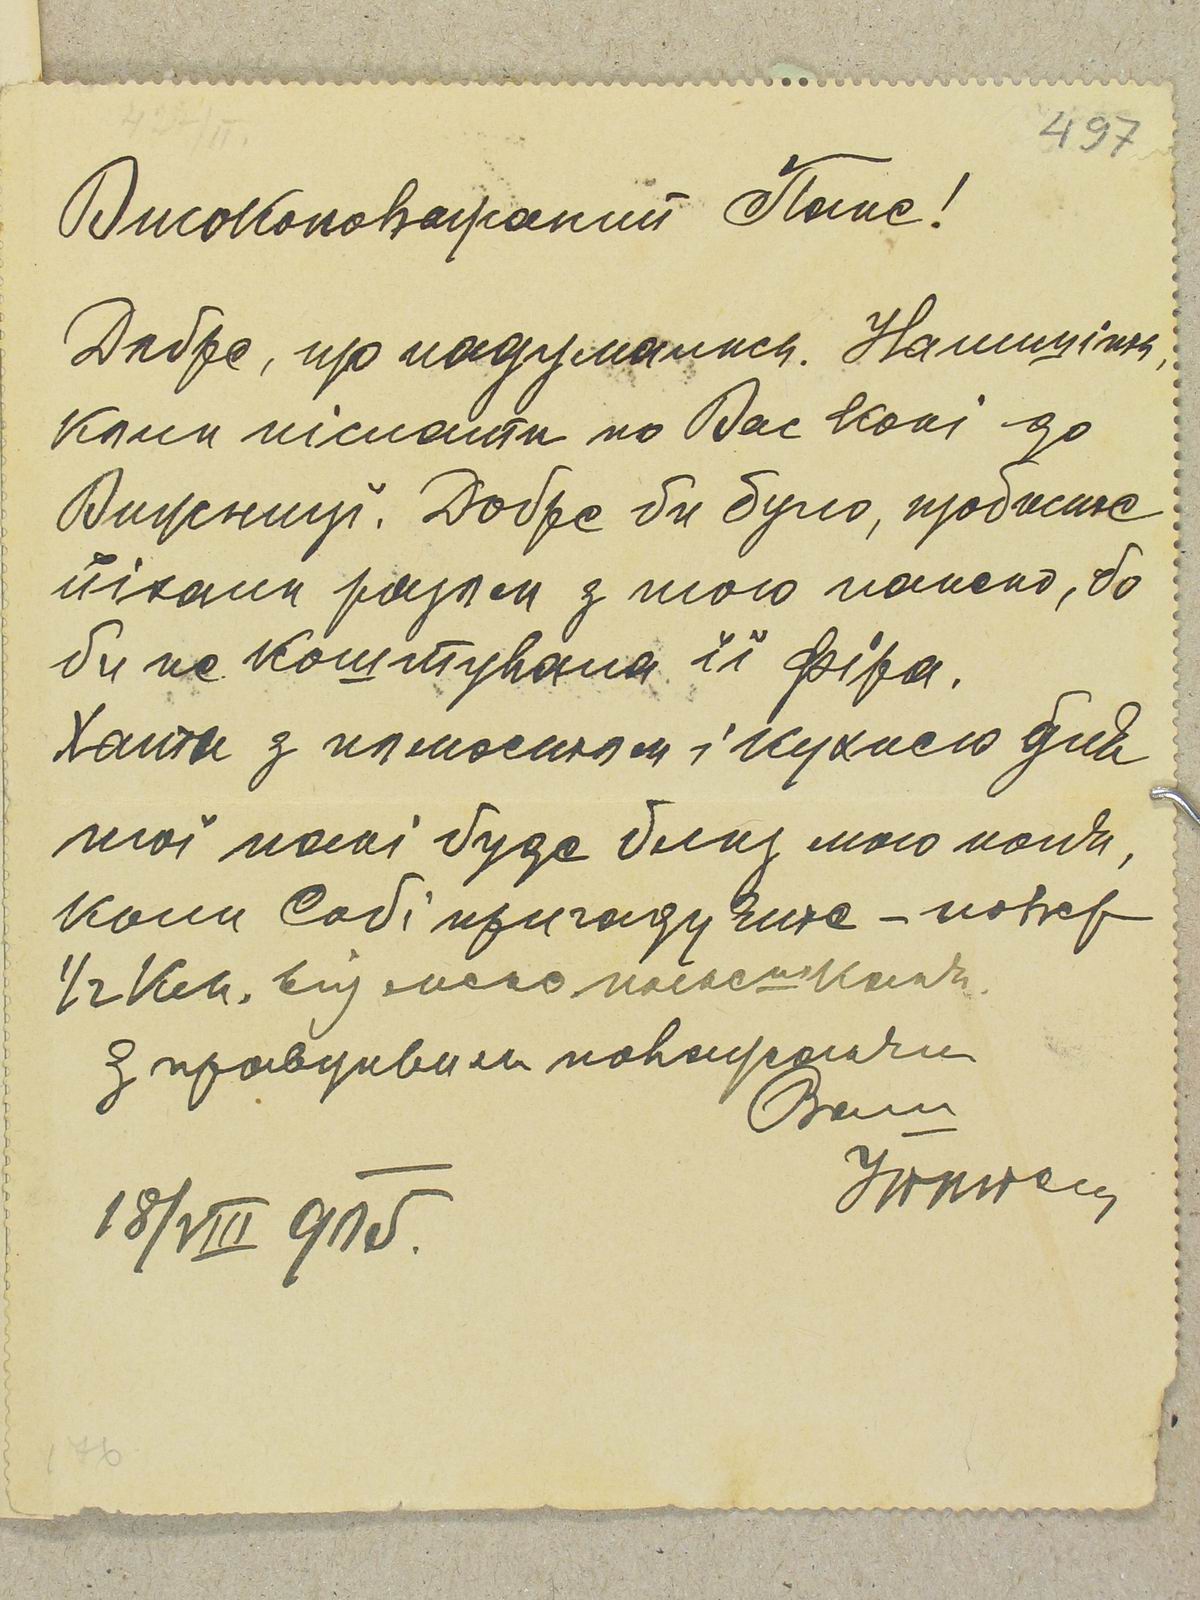 497
Високоповажаний Пане!
Добре, що надумались. Напишіть,
коли післати по Вас коні до
Вижниці. Добре би було, щобисьте
їхали разом з тою панею, бо
би не коштувала її фіра.
Хата з помостом і кухнею для
тої пані буде близ мою
коли Собі пригадуєте –
1/2 Км. від мого помешканя.
З правдивим поважанєм
Ваш
18/VIII 905.
176